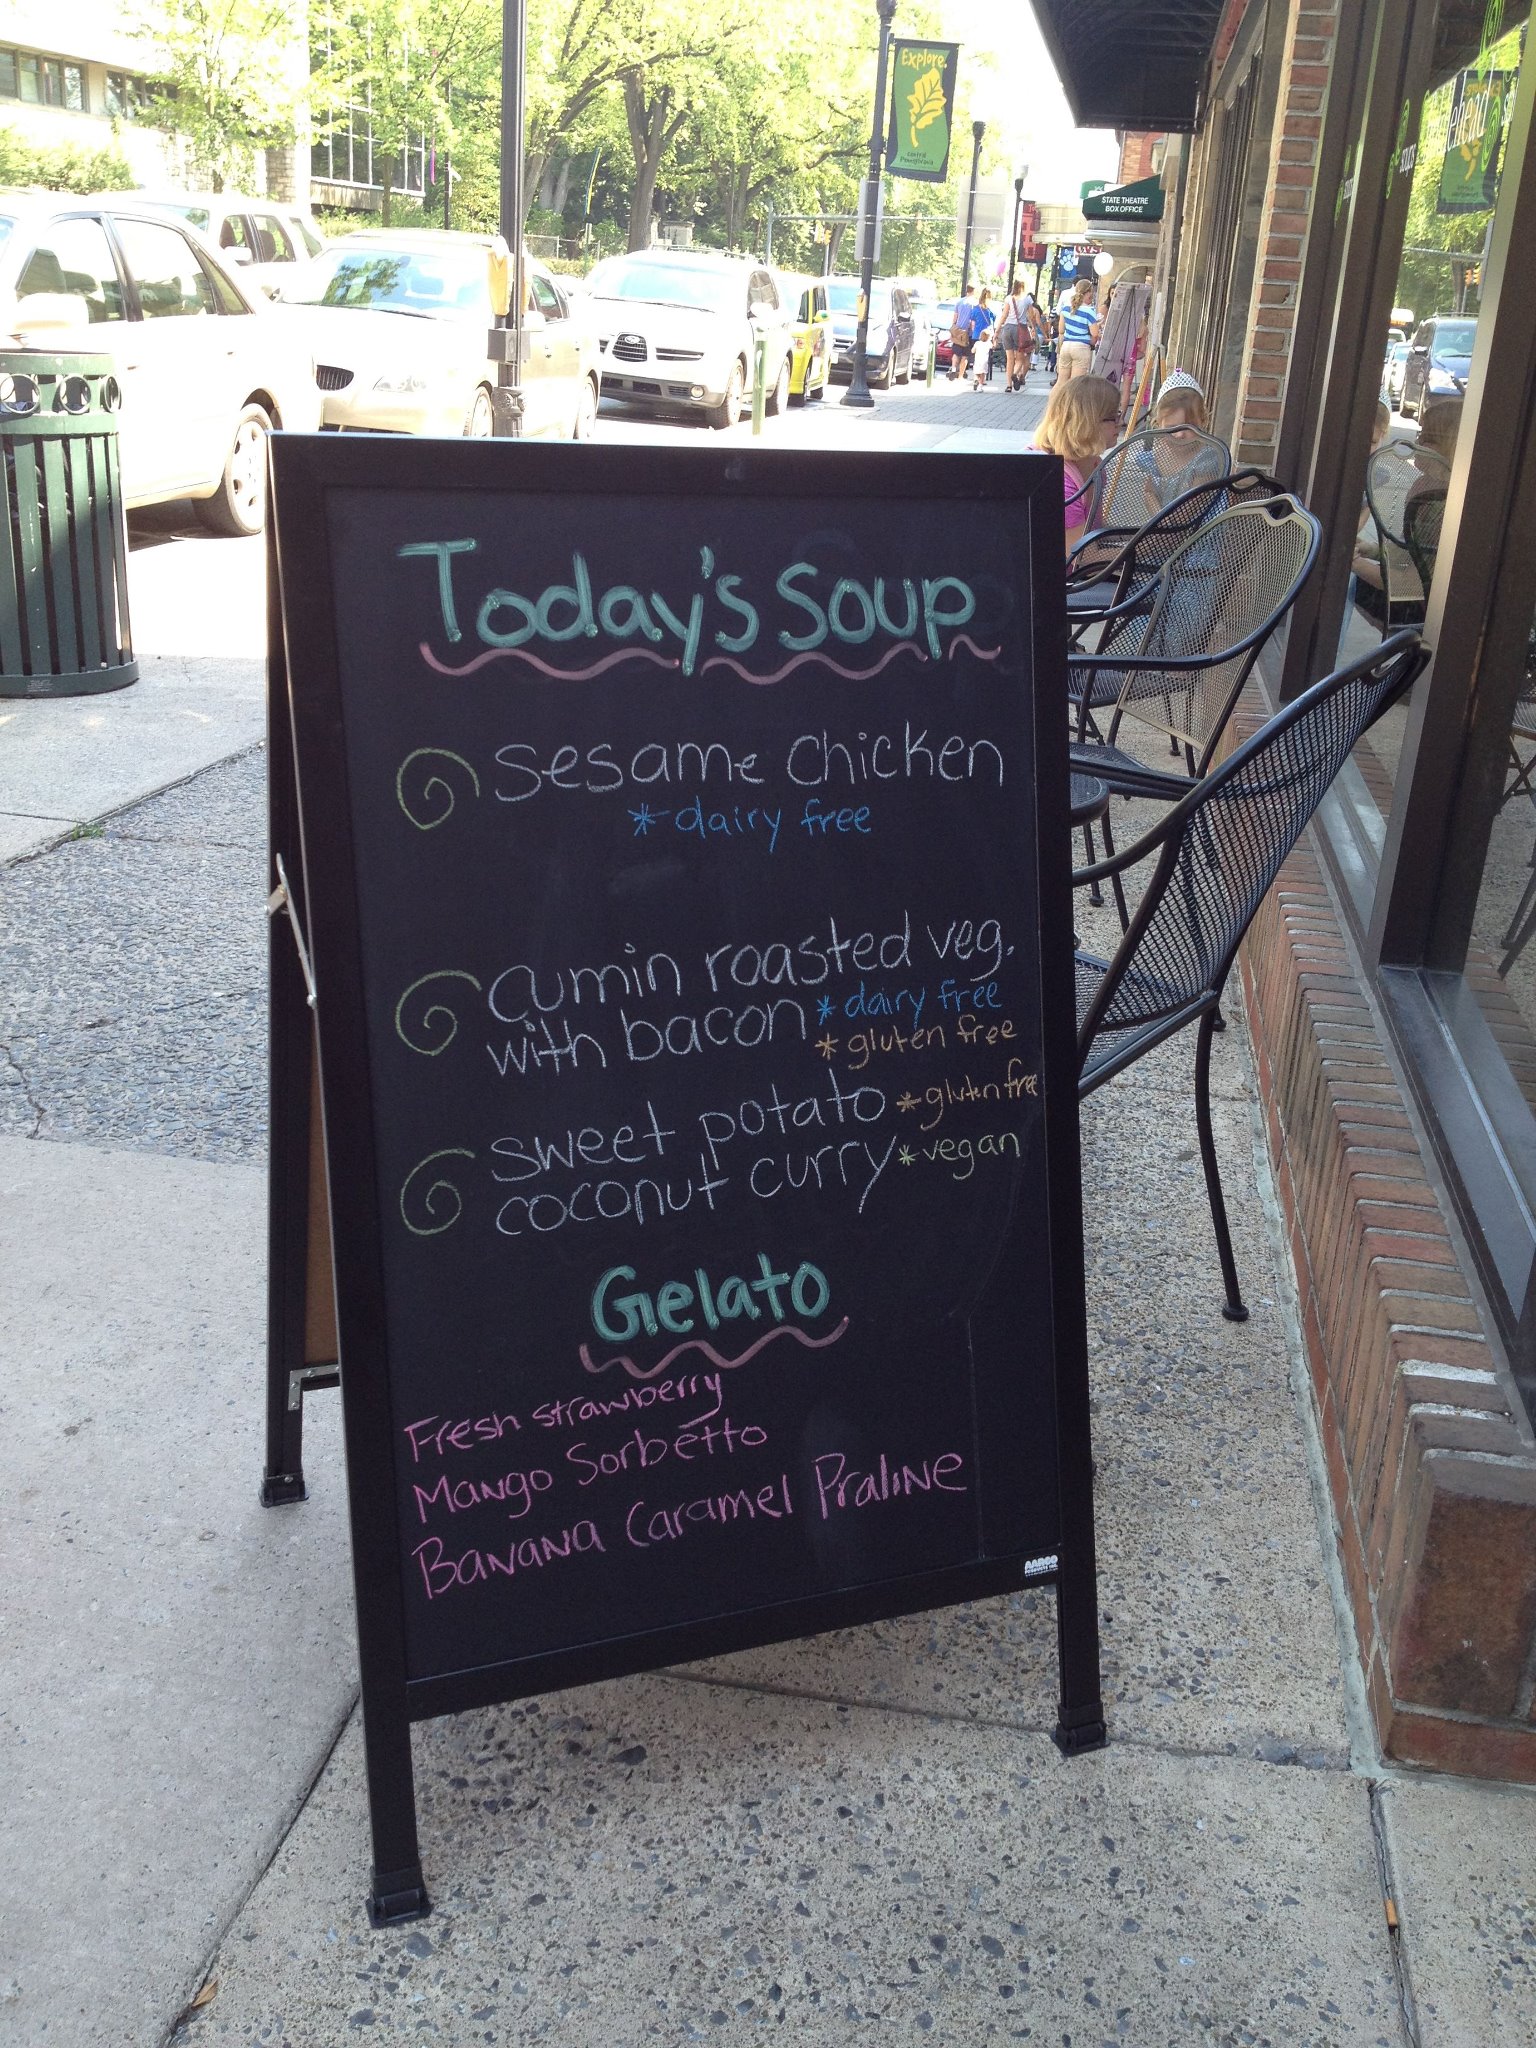 Explore.
Central
Pennsylvania
STATE THEATRE
BOX OFFICE
Today's Soup
Sesame Chicken
*dairy free
Cumin roasted veg.
with bacon *dairy free
*gluten free
sweet potato *gluten free
coconut curry *vegan
Gelato
Fresh strawberry
Mango Sorbetto
Banana Caramel Praline
AARCO